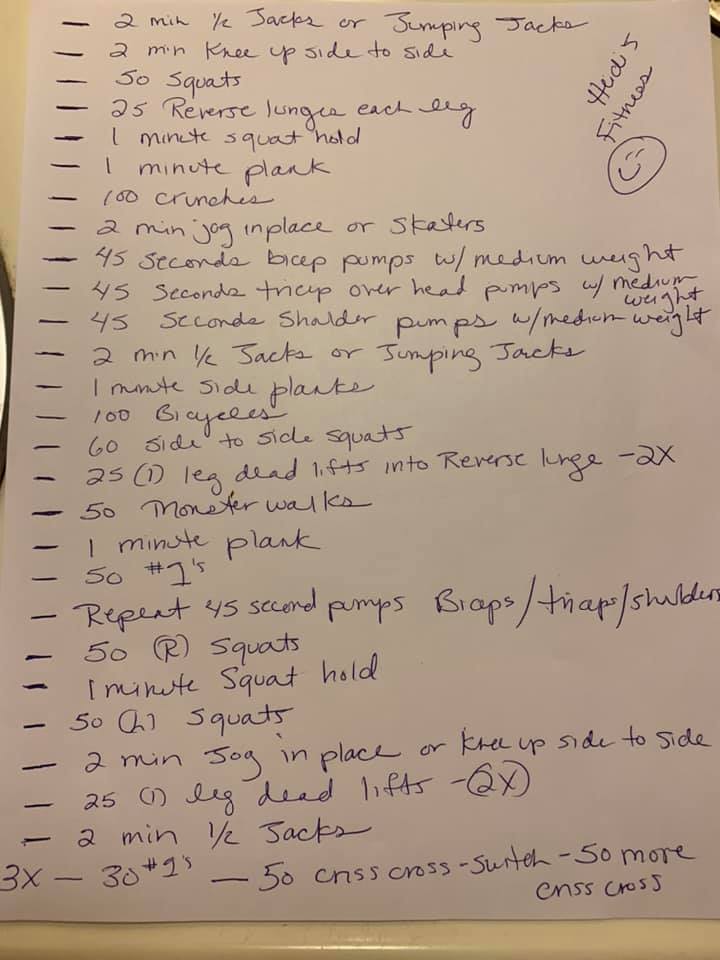 — 2 min 1/2 Jacks or Jumping Jacks
— 2 min Knee up side to side
— 50 Squats
— 25 Reverse lunges each leg
— 1 minute squat hold
— 1 minute plank
— 100 crunches
Heidi's
Fitness
— 2 min jog in place or Skaters
— 45 Seconds bicep pumps w/ medium weight
— 45 Seconds tricep over head pumps w/ medium
weight
— 45 Seconds Shoulder pumps w/ medium weight
— 2 min 1/2 Jacks or Jumping Jacks
— 1 minute side planks
— 100 Bicycles
— 60 side to side squats
— 25 (1) leg dead lifts into Reverse lunge - 2X
— 50 Monster walks
— 1 minute plank
— 50 #1's
— Repeat 45 second pumps Biceps/triceps/shoulders
— 50 (R) Squats
— 1 minute Squat hold
— 50 (L) Squats
— 2 min Jog in place or Knee up side to side
— 25 (1) leg dead lifts - (2X)
— 2 min 1/2 Jacks
3X — 30 #1's — 50 criss cross - switch - 50 more
criss cross